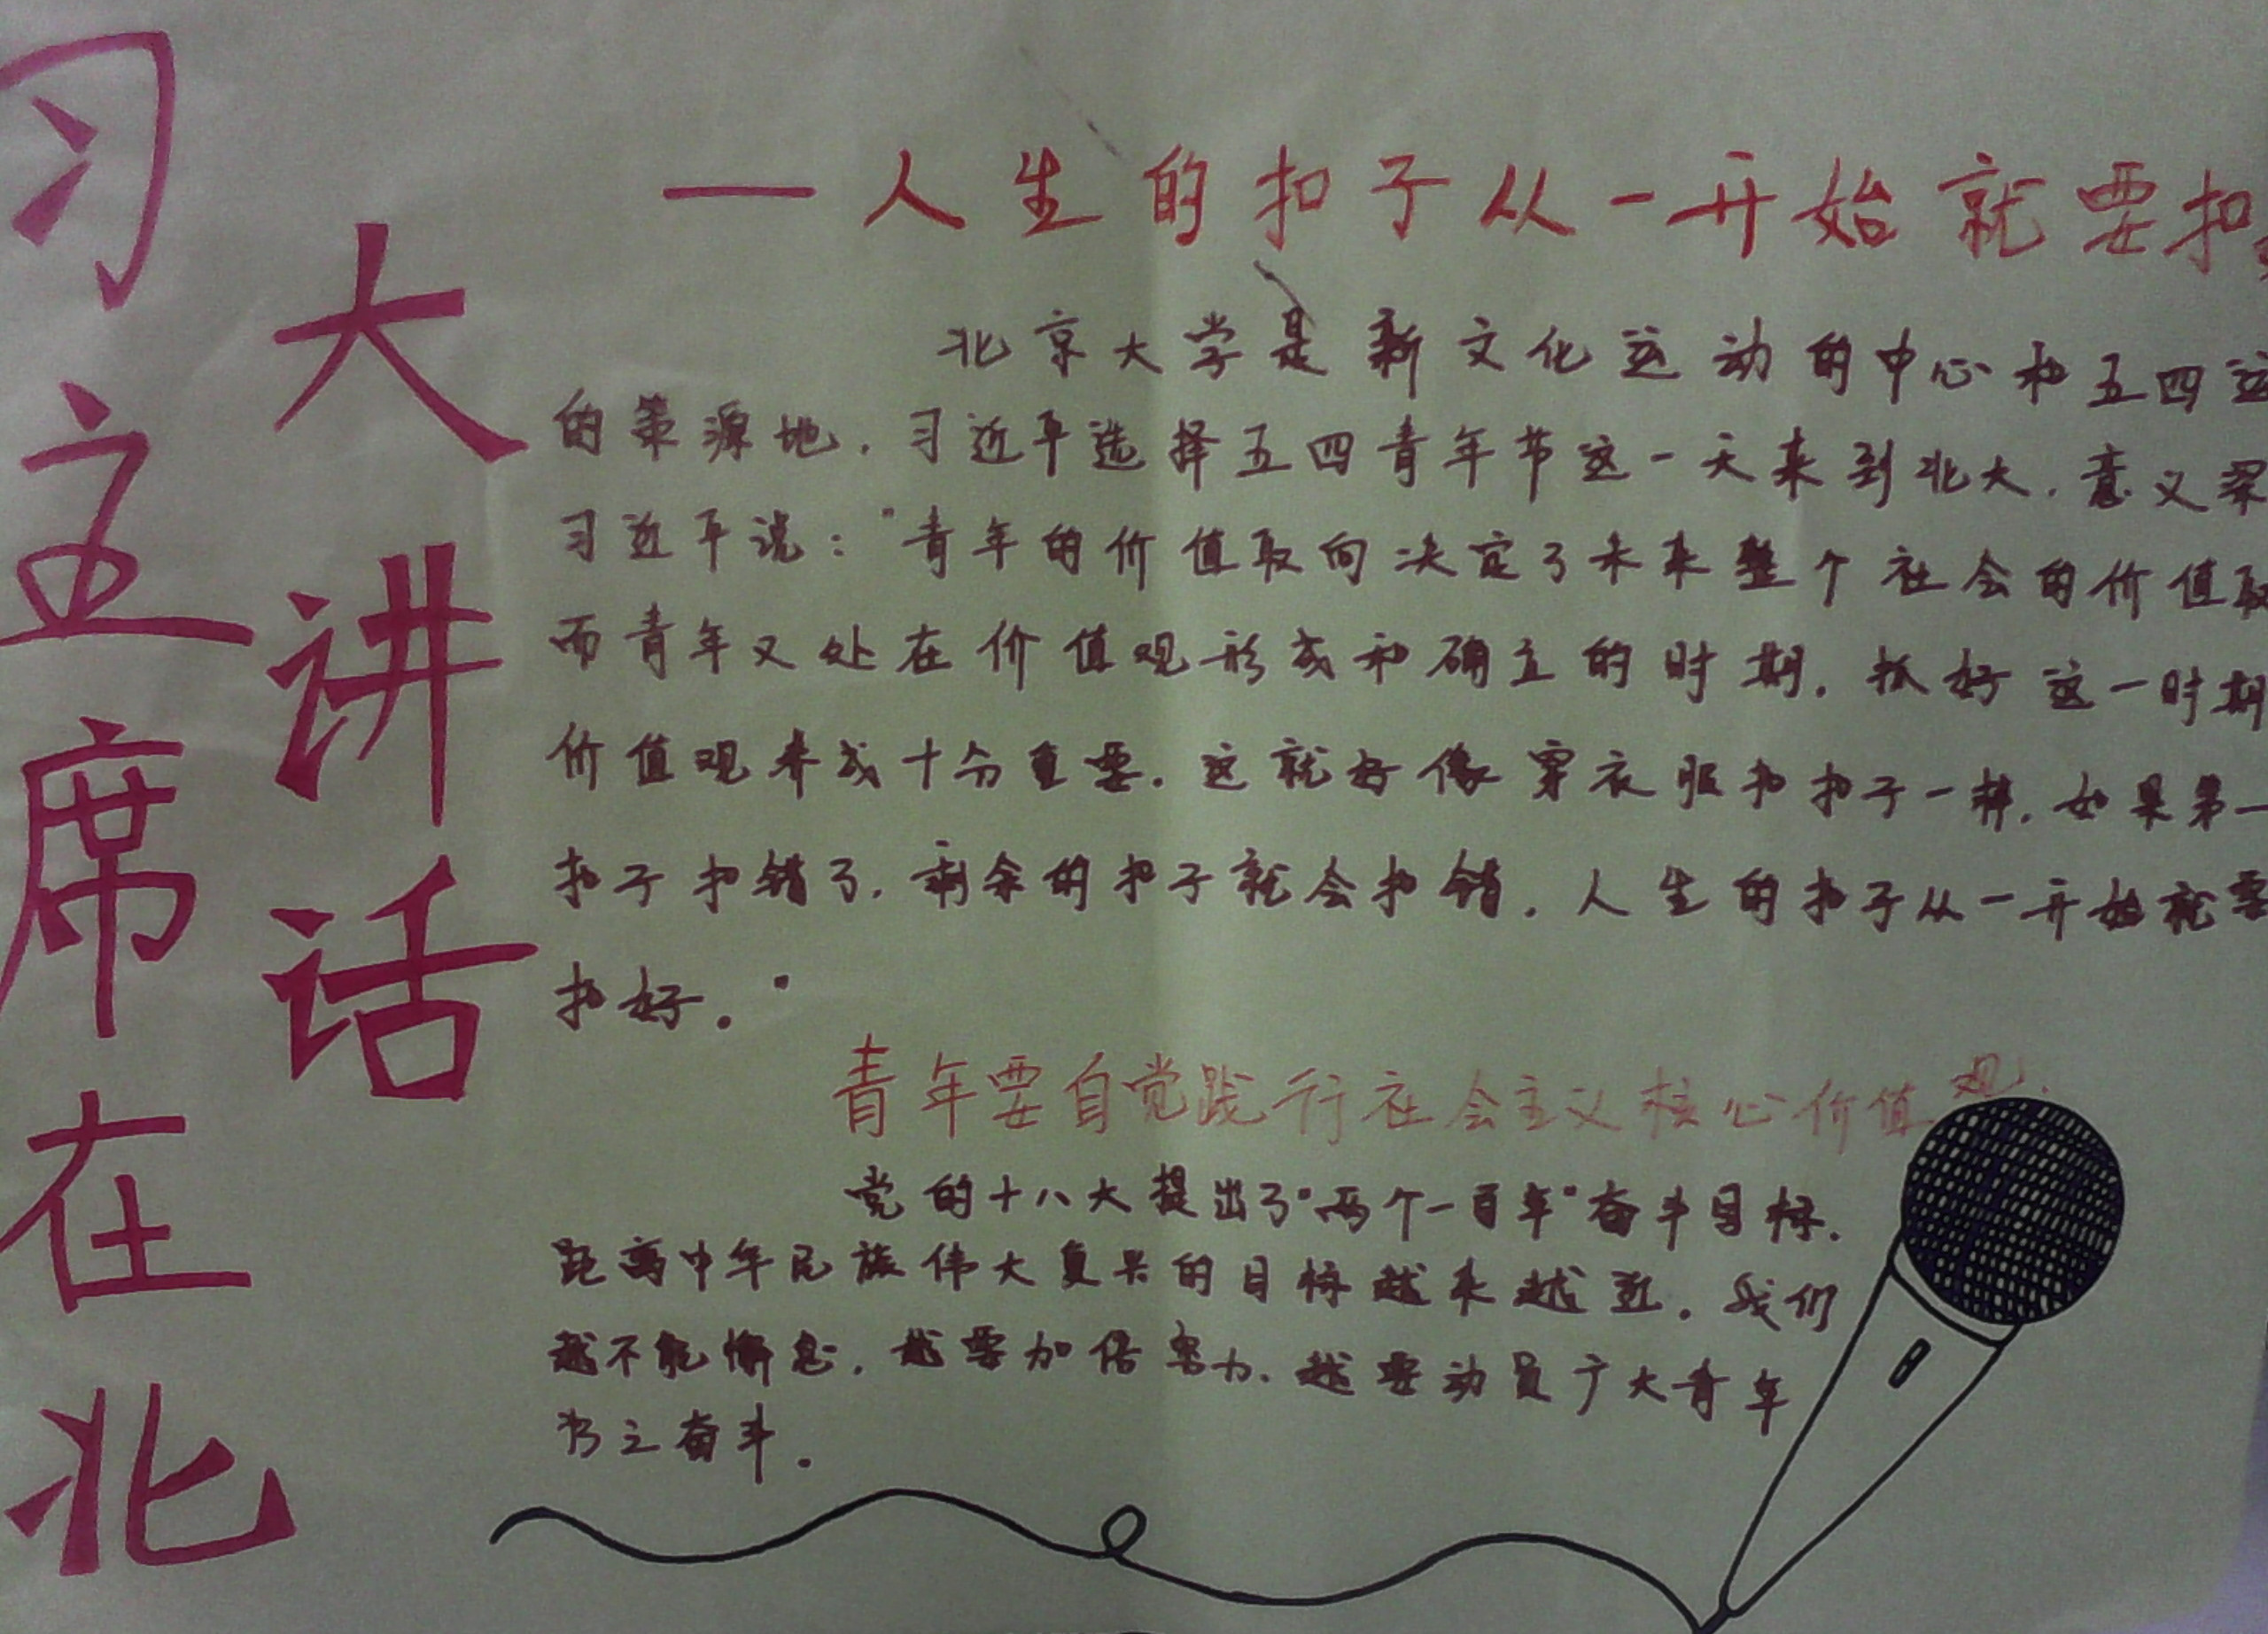 习主席在北
大讲话
—人生的扣子从一开始就要扣
北京大学是新文化运动的中心和五四运
的策源地,习近平选择五四青年节这一天来到北大,意义深
习近平说:"青年的价值取向决定了未来整个社会的价值取
而青年又处在价值观形成和确立的时期,抓好这一时期
价值观养成十分重要.这就好像穿衣服扣扣子一样,如果第一
扣子扣错了,剩余的扣子就会扣错.人生的扣子从一开始就要
扣好。"
青年要自觉践行社会主义核心价值观.
党的十八大提出了"两个一百年"奋斗目标.
距离中华民族伟大复兴的目标越来越近.我们
越不能懈怠,越要加倍努力.越要动员广大青年
为之奋斗.